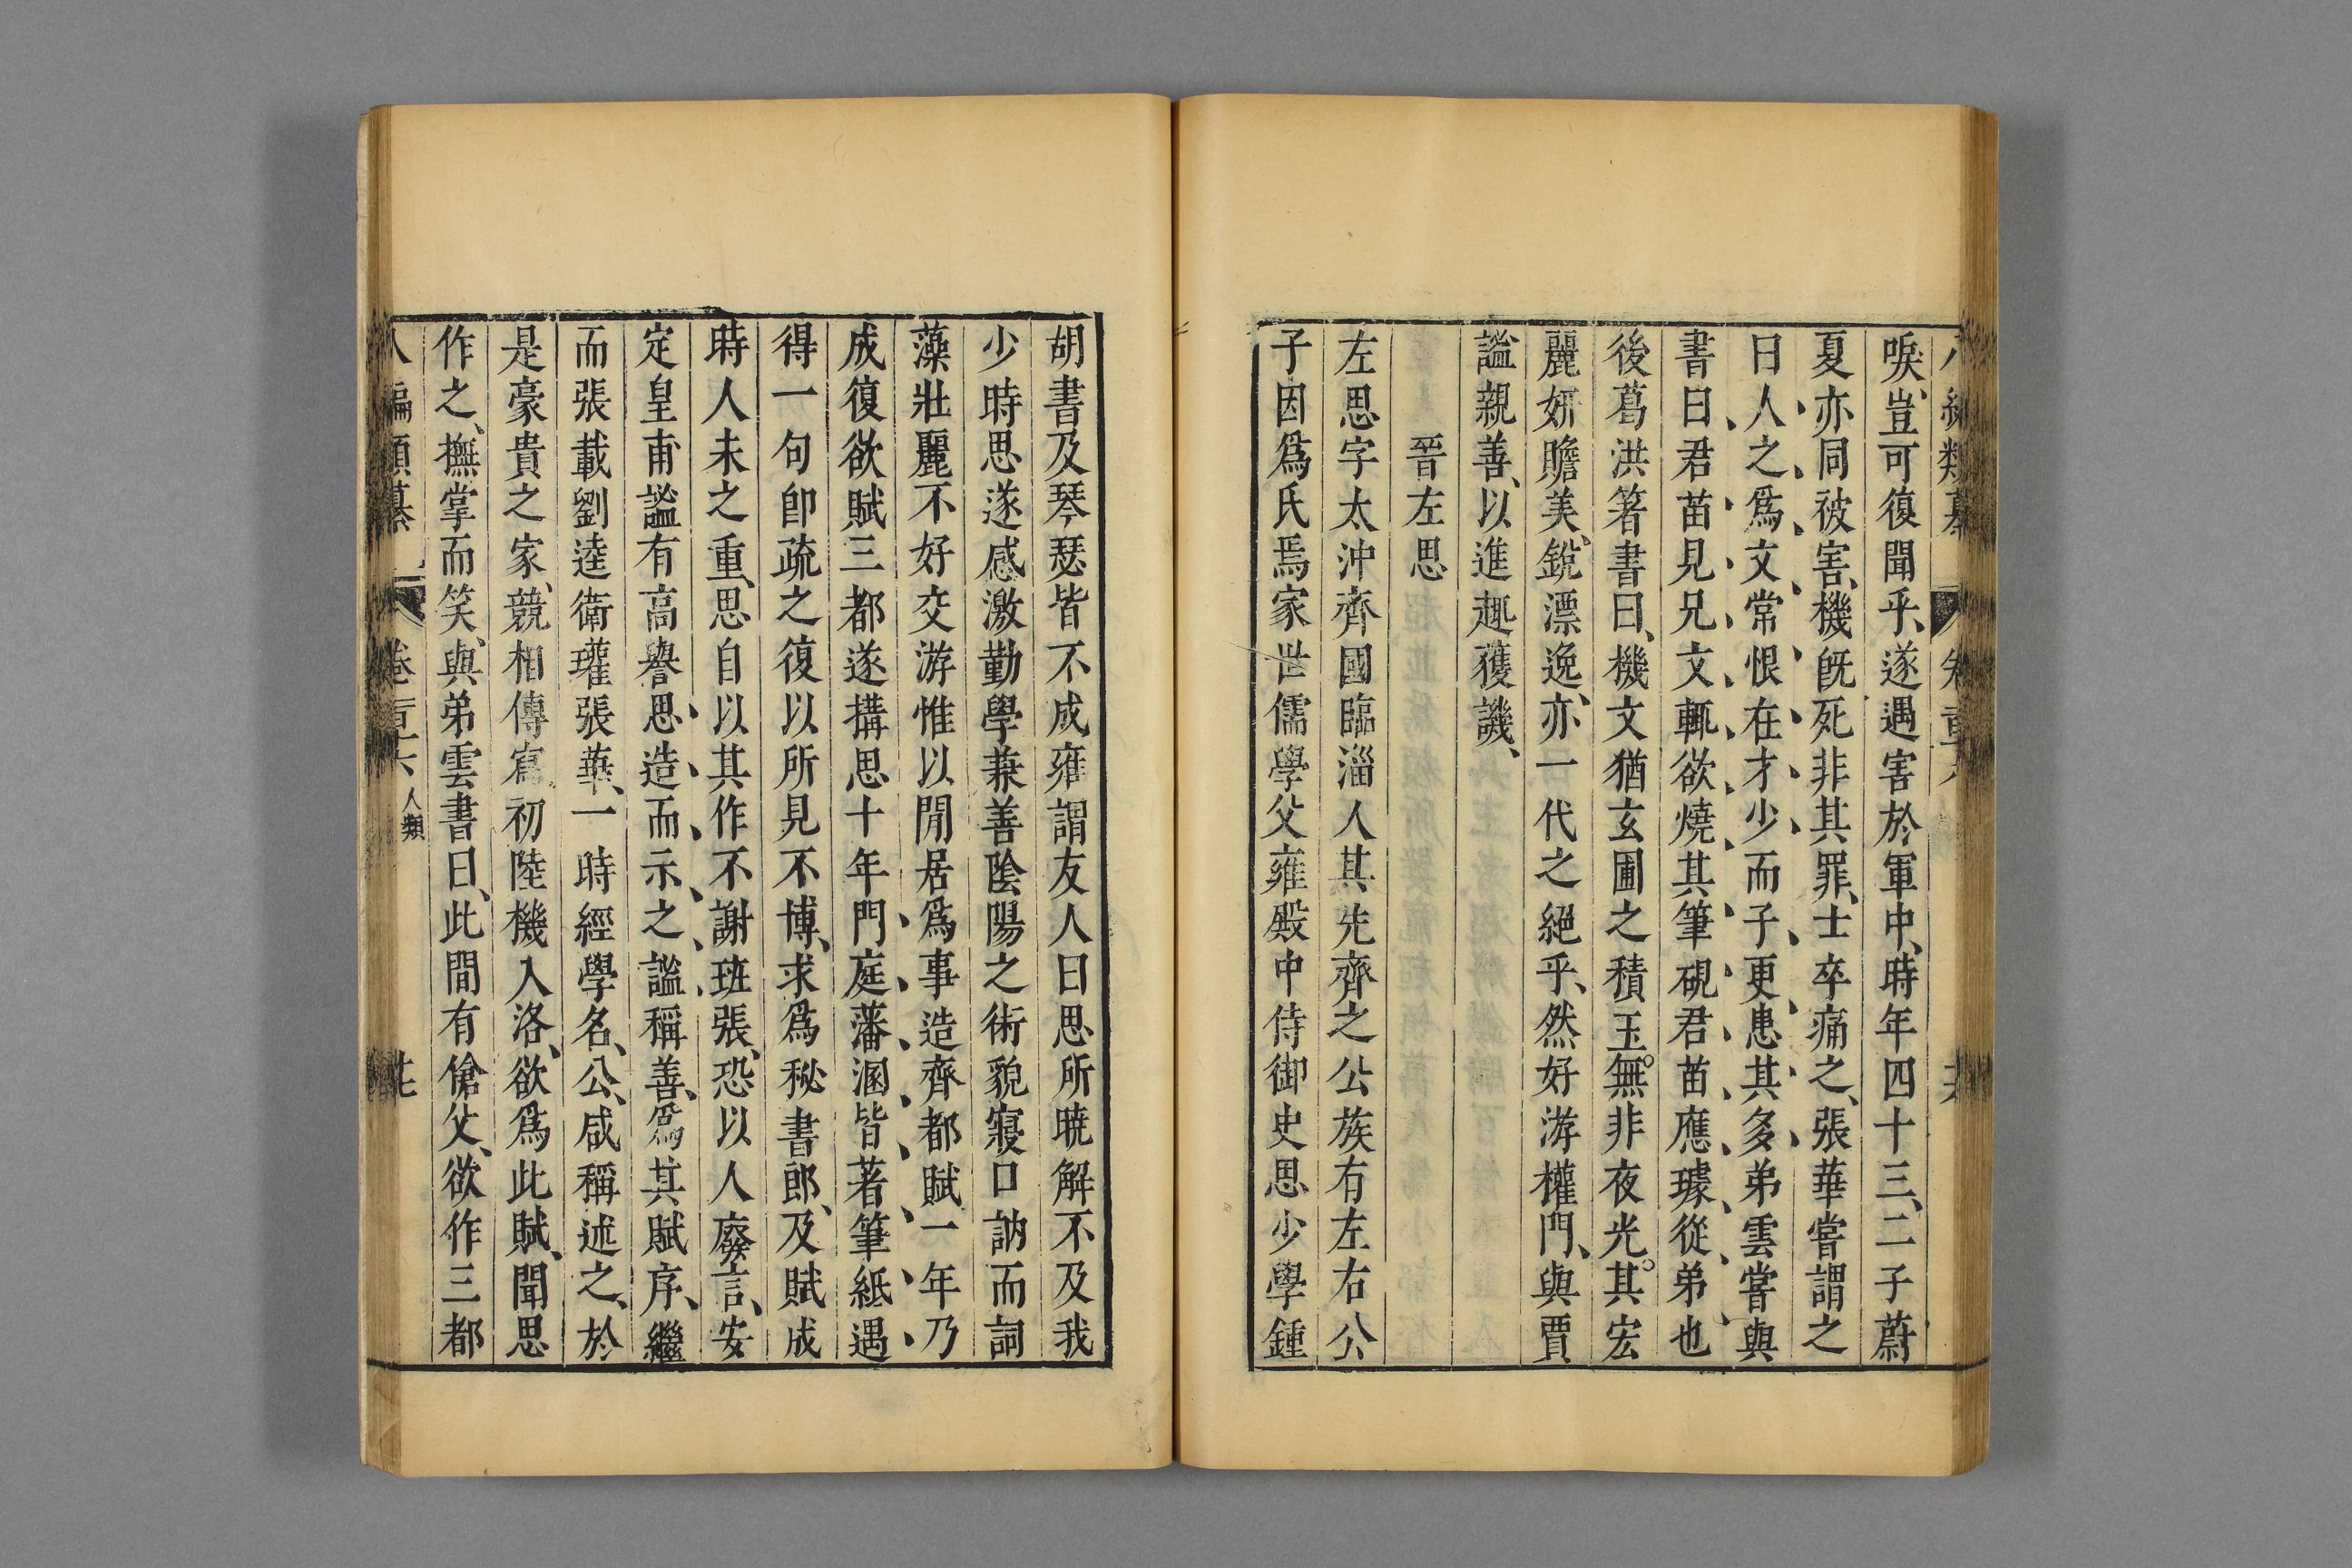 唳豈可復聞乎、遂遇害於軍中、時年四十三、二子蔚
夏亦同被害、機旣死非其罪、士卒痛之、張華嘗謂之
曰人之爲文常恨在才少而子更患其多弟雲嘗與
書曰君苗見兄文輒欲燒其筆硯君苗應璩從弟也
後葛洪箸書曰、機文猶玄圃之積玉無非夜光其宏
麗妍贍美、銳漂逸、亦一代之絕乎、然好游權門、與賈
謐親善、以進趣獲譏、
晉左思
左思字太沖齊國臨淄人其先齊之公族有左右公
子因爲氏焉家世儒學父雍殿中侍御史思少學鍾
胡書及琴瑟皆不成雍謂友人曰思所曉解不及我
少時思遂感激勤學兼善陰陽之術貌寢口訥而詞
藻壯麗不好交游惟以閒居爲事造齊都賦一年乃
成復欲賦三都遂搆思十年門庭藩溷皆著筆紙遇
得一句卽疏之復以所見不博、求爲秘書郎、及賦成
時人未之重、思自以其作不謝班張、恐以人廢言、安
定皇甫謐有高譽思造而示之謐稱善、爲其賦序、繼
而張載劉逵衛瓘張華、一時經學名公、咸稱述之、於
是豪貴之家、競相傳寫、初陸機入洛、欲爲此賦、聞思
作之、撫掌而笑、與弟雲書曰、此間有傖父、欲作三都
八編類纂 卷百六 人類